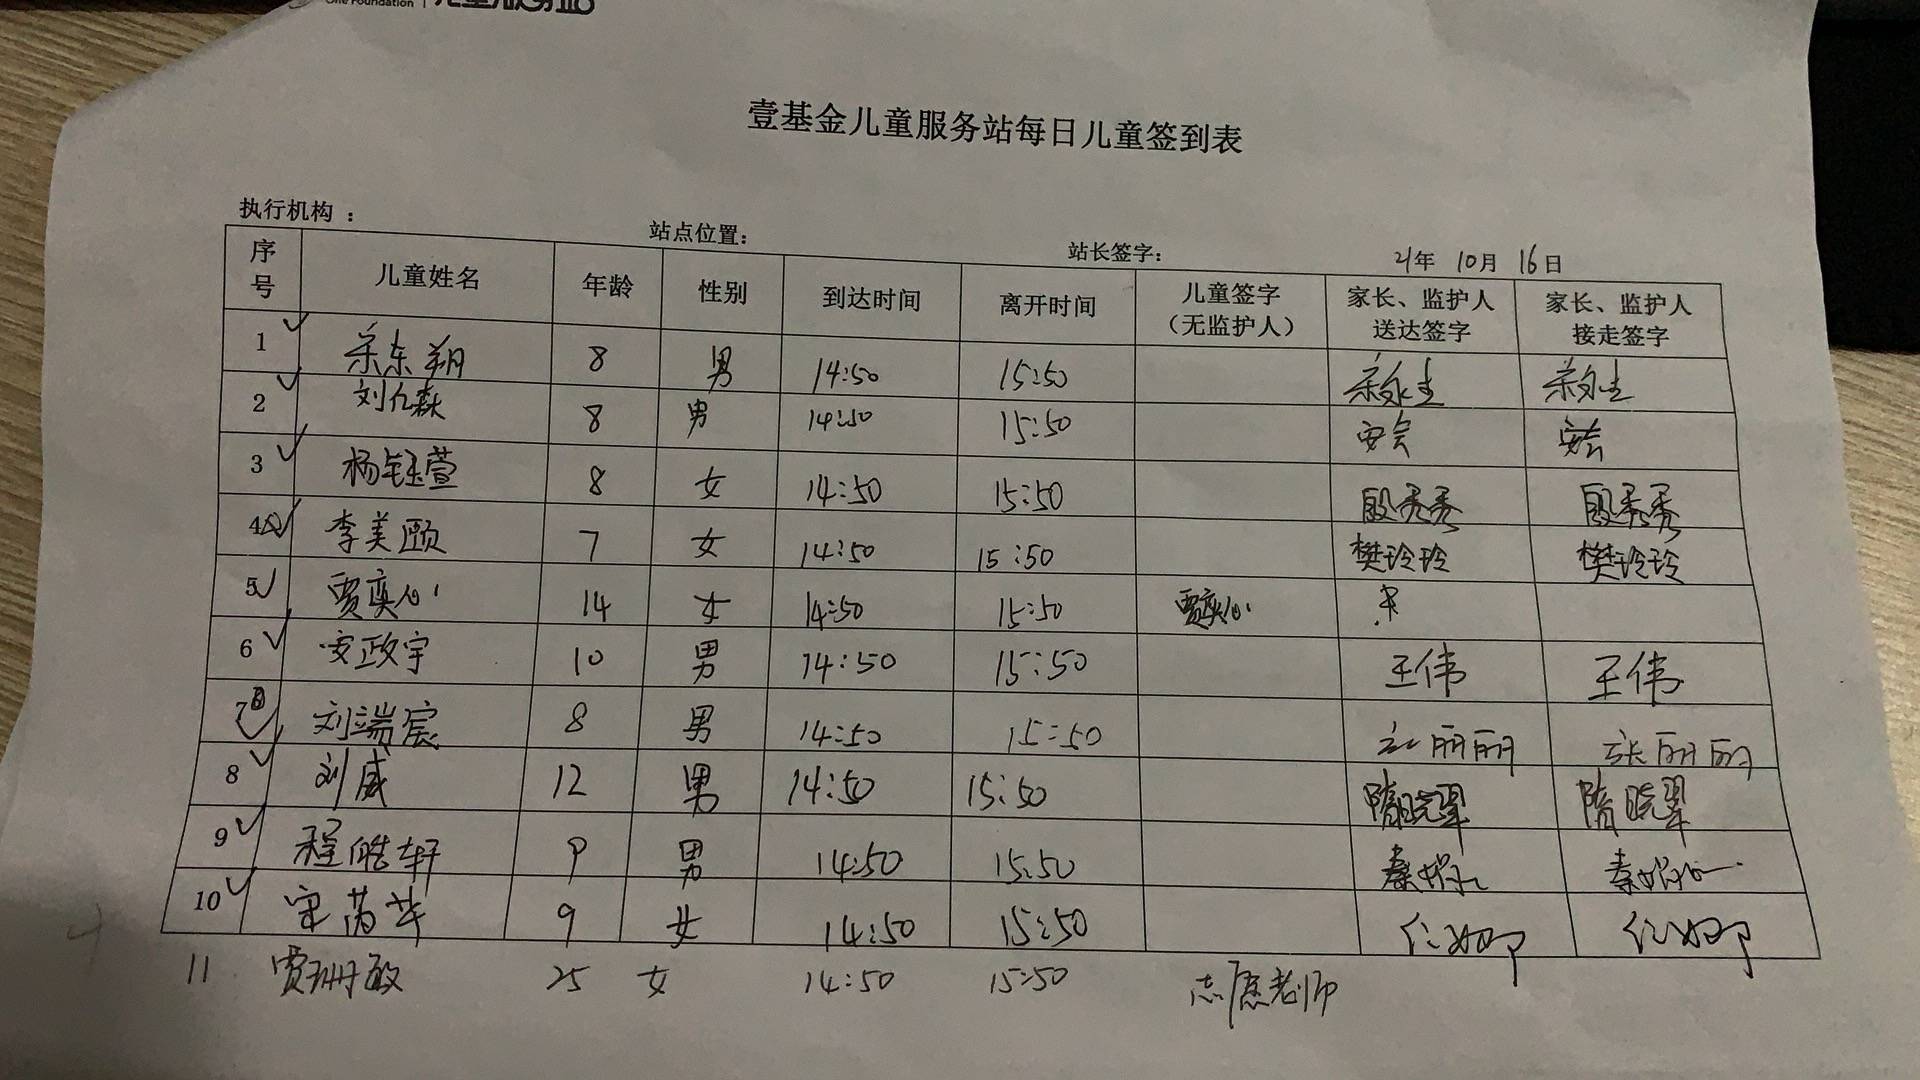 One Foundation | 儿童服务站
壹基金儿童服务站每日儿童签到表
执行机构： 站点位置： 站长签字： 21年 10月 16日
序号 儿童姓名 年龄 性别 到达时间 离开时间 儿童签字（无监护人） 家长、监护人送达签字 家长、监护人接走签字
1 东翔 8 男 14:50 15:50
2 刘亿森 8 男 14:50 15:50 安会 安会
3 杨钰萱 8 女 14:50 15:50 殷秀秀 殷秀秀
4 李美颐 7 女 14:50 15:50 樊玲玲 樊玲玲
5 贾奕心 14 女 14:50 15:50 贾奕心
6 安政宇 10 男 14:50 15:50 王伟 王伟
7 刘端宸 8 男 14:50 15:50 张丽丽 张丽丽
8 刘威 12 男 14:50 15:50 隋晓翠 隋晓翠
9 程皓轩 9 男 14:50 15:50 秦 秦
10 宋芮华 9 女 14:50 15:50
11 贾珊敏 25 女 14:50 15:50 志愿老师